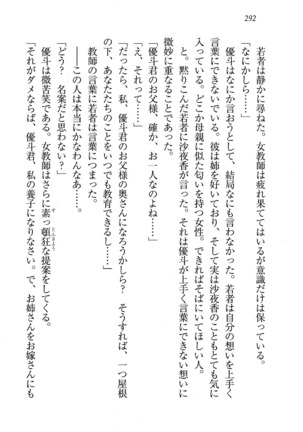 292
若者は静かに尋ねた。女教師は疲れ果ててはいるが意識だけは保っている。
「なにかしら……」
優斗はなにか言おうとして、結局なにも言わなかった。若者は自分の想いを上手く
言葉にできないでいた。彼は姉を好いており、そして実は沙夜香のこともとても気に
入っている。どこか母親に似た匂いを持つ女性。できればそばにいてほしい人。
と、黙りこんだ若者に沙夜香が言った。それは優斗が上手く言葉にできない想いに
微妙に重なることであった。
「優斗君のお父様、確か、お一人なのよね……」
「え？ ええ、そうですけど……」
「だったら、私、優斗君のお父様の奥さんになろうかしら？ そうすれば、一つ屋根
の下、あなたたちのことをいつでも教育できるし……」
教師の言葉に若者は言葉につまった。
――この人は本当にかなわんなあ……。
「どう？ 名案だと思わない？」
優斗は微苦笑である。女教師はさらに素っ頓狂な提案をしてくる。
「それがダメならば、優斗君、私の養子になりなさい。で、お姉さんをお嫁さんにも